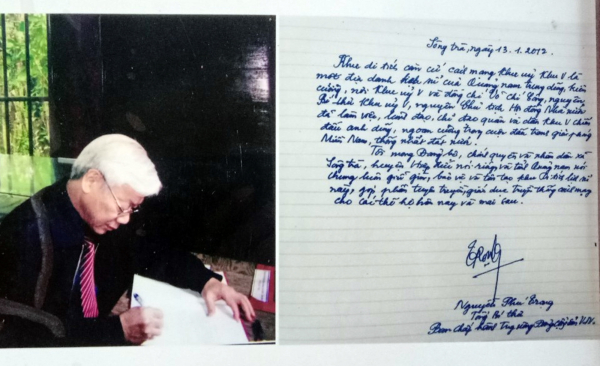 Sông trà, ngày 13.1.2012.
Khu di tích căn cứ cách mạng Khu uỷ Khu V là
một địa danh lịch sử của Quảng nam trung dũng, kiên
cường, nơi Khu uỷ V và đồng chí Võ Chí Công, nguyên
Bí thư Khu uỷ V, nguyên Chủ tịch Hội đồng Nhà nước
đã làm việc, lãnh đạo, chỉ đạo quân và dân Khu V chiến
đấu anh dũng, ngoan cường trong cuộc đấu tranh giải phóng
Miền Nam, thống nhất đất nước.
Tôi mong Đảng bộ, chính quyền và nhân dân xã
Sông Trà, huyện Hiệp Đức nói riêng và tỉnh Quảng nam nói
chung luôn giữ gìn, bảo vệ và tôn tạo khu di tích lịch sử
này, góp phần tuyên truyền, giáo dục truyền thống cách mạng
cho các thế hệ hôm nay và mai sau.
Trọng
Nguyễn Phú Trọng
Tổng Bí thư
Ban chấp hành Trung ương Đảng Cộng sản V.N.